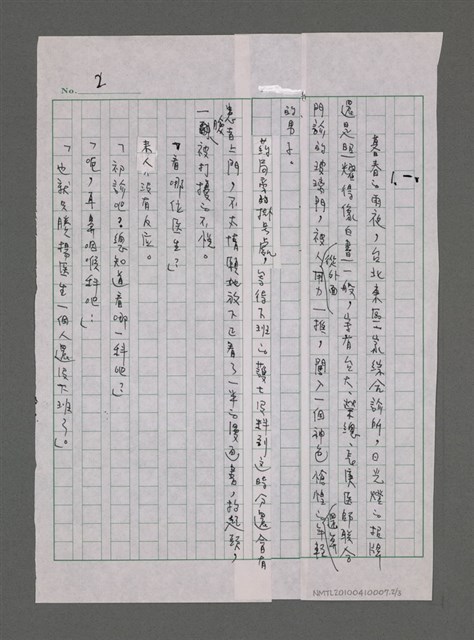 No. 2
一、
暮春的雨夜，台北東區一家綜合診所，日光燈的招牌
還是照耀得像白晝一般，寫有台大、榮總、長庚医師聯合
門診的玻璃門，被人從外面用力一推，闖入一個神色倉惶的年輕
的男子。
葯局旁的掛号處，等待下班的護士沒料到這時分還會有
患者上門，不太情願地放下正看了一半的漫画書，抬起頭，
一臉被打擾的不悅。
「看哪位医生？」
來人沒有反应。
「初診吧？總知道看哪一科吧？」
「呃，耳鼻咽喉科吧…」
「也就只勝医生一個人還沒下班了。
NMTL20100410007 2/3